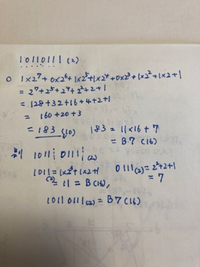 10110111 (2)
○ 1×2⁷ + 0×2⁶ + 1×2⁵ + 1×2⁴ + 0×2³ + 1×2² + 1×2 + 1
= 2⁷ + 2⁵ + 2⁴ + 2² + 2 + 1
= 128 + 32 + 16 + 4 + 2 + 1
= 160 + 20 + 3
= 183 (10) 183 = 11×16 + 7
= B7 (16)
別 1011 ¦ 0111 (2)
1011 (2) = 1×2³ + 1×2 + 1 0111 (2) = 2² + 2 + 1
= 11 = B (16), = 7
1011 0111 (2) = B7 (16)